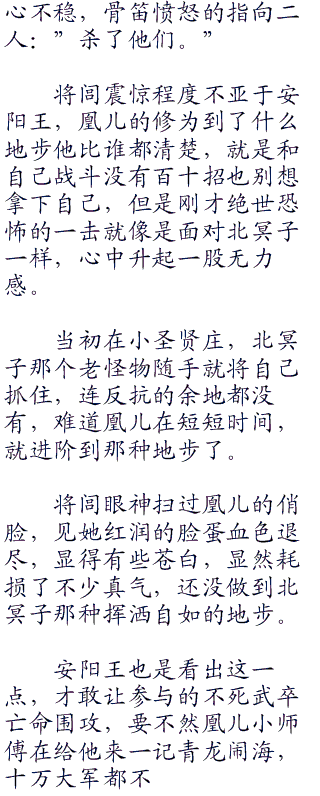 心不稳，骨笛愤怒的指向二
人：”杀了他们。”
将闾震惊程度不亚于安
阳王，凰儿的修为到了什么
地步他比谁都清楚，就是和
自己战斗没有百十招也别想
拿下自己，但是刚才绝世恐
怖的一击就像是面对北冥子
一样，心中升起一股无力
感。
当初在小圣贤庄，北冥
子那个老怪物随手就将自己
抓住，连反抗的余地都没
有，难道凰儿在短短时间，
就进阶到那种地步了。
将闾眼神扫过凰儿的俏
脸，见她红润的脸蛋血色退
尽，显得有些苍白，显然耗
损了不少真气，还没做到北
冥子那种挥洒自如的地步。
安阳王也是看出这一
点，才敢让参与的不死武卒
亡命围攻，要不然凰儿小师
傅在给他来一记青龙闹海，
十万大军都不